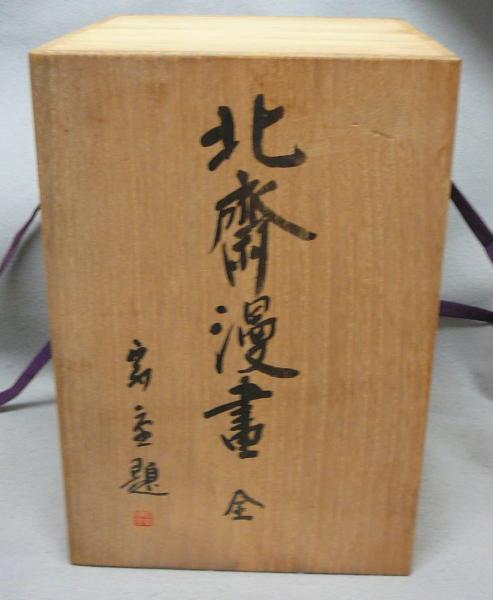 北齋漫畫 全
題